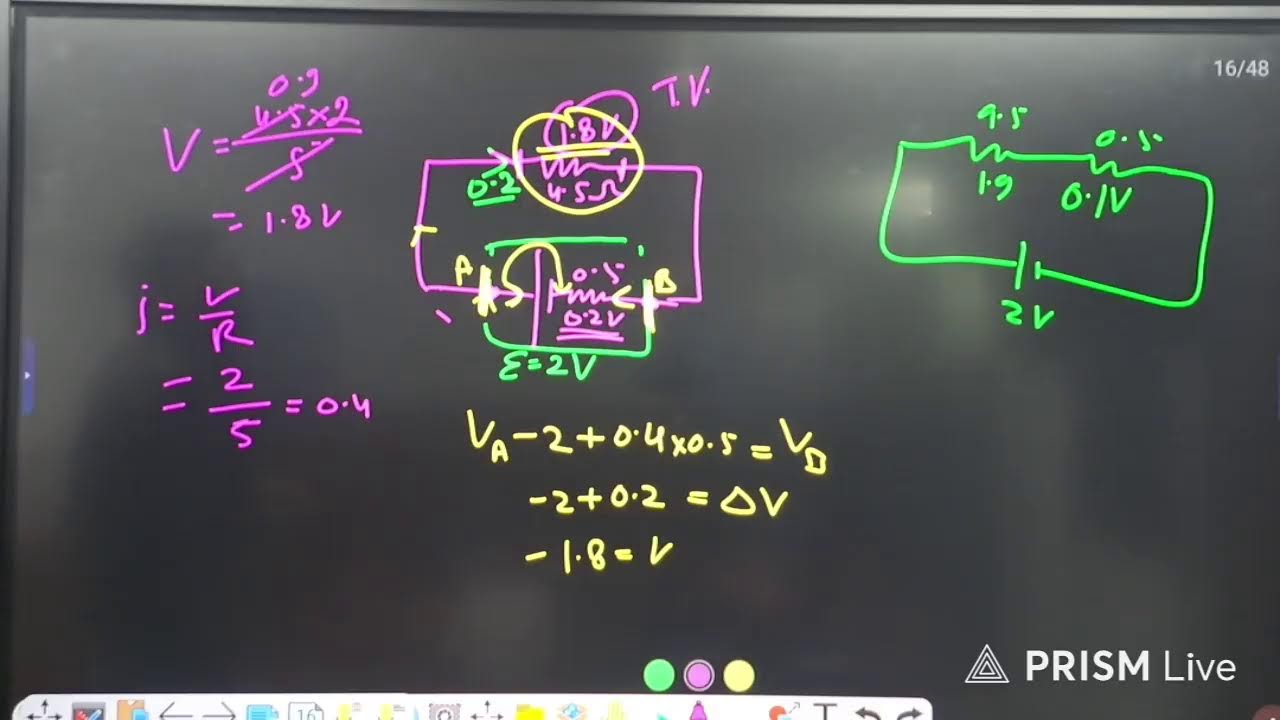 16/48
0.9
V = 4.5×2
5
= 1.8V
i = V
R
= 2 = 0.4
5
T.V.
1.8V
0.2
4.5Ω
A
0.5
B
0.2V
ε=2V
9.5
0.5
1.9
0.1V
2V
V_A - 2 + 0.4×0.5 = V_B
-2+0.2 = ΔV
-1.8 = V
PRISM Live
16
T